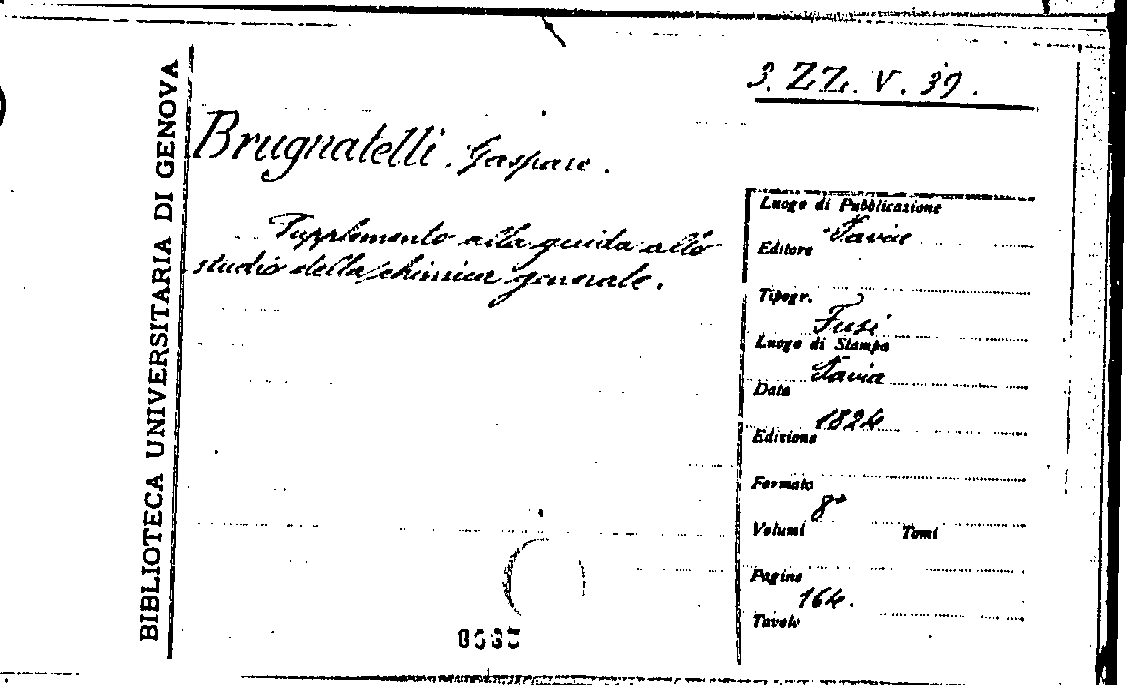 BIBLIOTECA UNIVERSITARIA DI GENOVA
3. ZZ. V. 39.
Brugnatelli. Gaspare.
Supplemento alla guida allo
studio della chimica generale.
Luogo di Pubblicazione
Pavia
Editore
Tipogr.
Fusi
Luogo di Stampa
Pavia
Data
1824
Edizione
Formato
8°
Volumi Tomi
Pagine
164.
Tavole